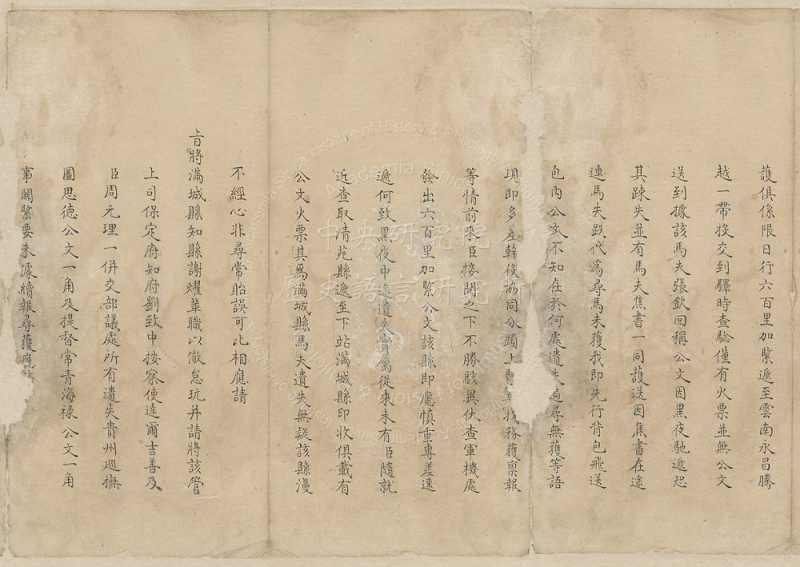 護俱係限日行六百里加緊遞至雲南永昌騰
越一帶投交到驛時查驗僅有火票並無公文
送到據該馬夫張欽回稱公文因黑夜馳遞恐
其踈失並有馬夫焦書一同護送因焦書在途
連馬失跌代為尋馬未獲我即先行背包飛送
包內公文不知在於何處遺失遍尋無獲等語
現即多差幹役協同分頭上緊尋找務獲稟報
等情前來臣接閱之下不勝駭異伏查軍機處
發出六百里加緊公文該縣即應慎重專差速
遞何致黑夜中途遺失實屬從來未有臣隨就
近查取清苑縣遞至下站滿城縣印收俱載有
公文火票其為滿城縣馬夫遺失無疑該縣漫
不經心非尋常貽誤可比相應請
旨將滿城縣知縣謝燿革職以儆怠玩并請將該管
上司保定府知府劉致中按察使達爾吉善及
臣周元理一併交部議處所有遺失貴州巡撫
圖思德公文一角及提督常青海祿公文一角
事關緊要未據續報尋獲應